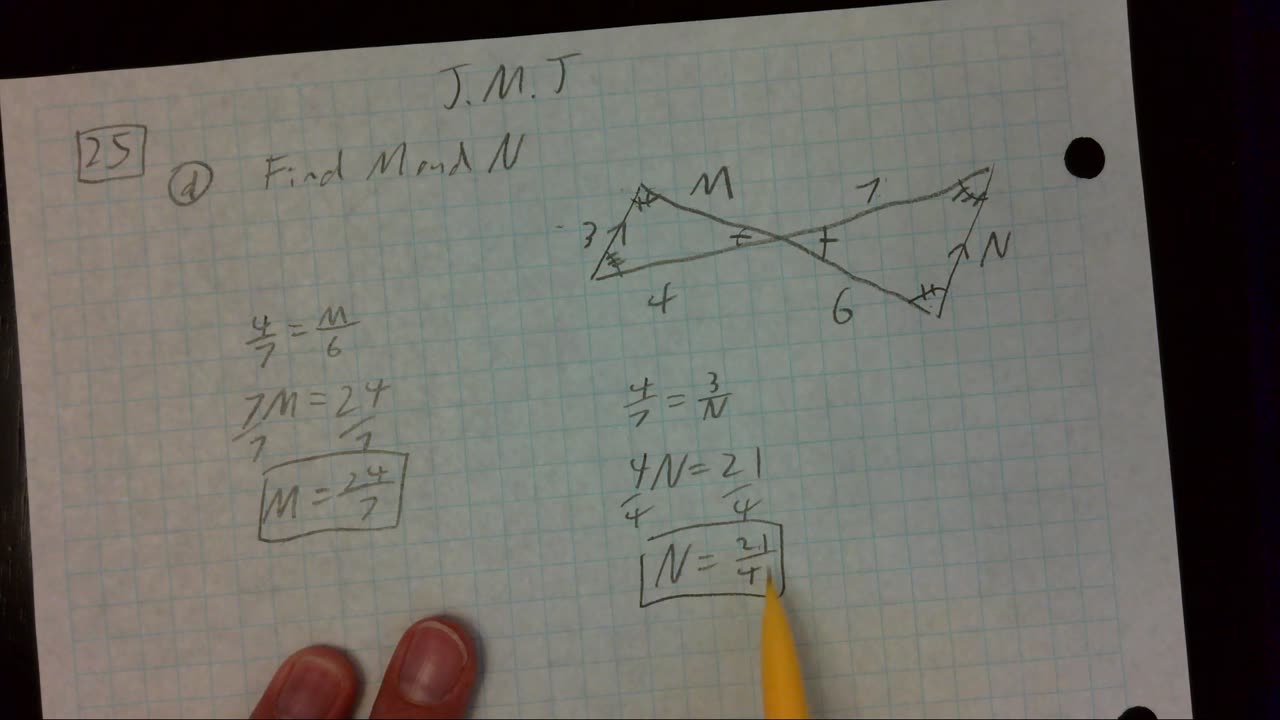 J.M.J
25
d Find M and N
M
7
3
N
4
6
4/7 = M/6
7M = 24
7 7
M = 24/7
4/7 = 3/N
4N = 21
4 4
N = 21/4